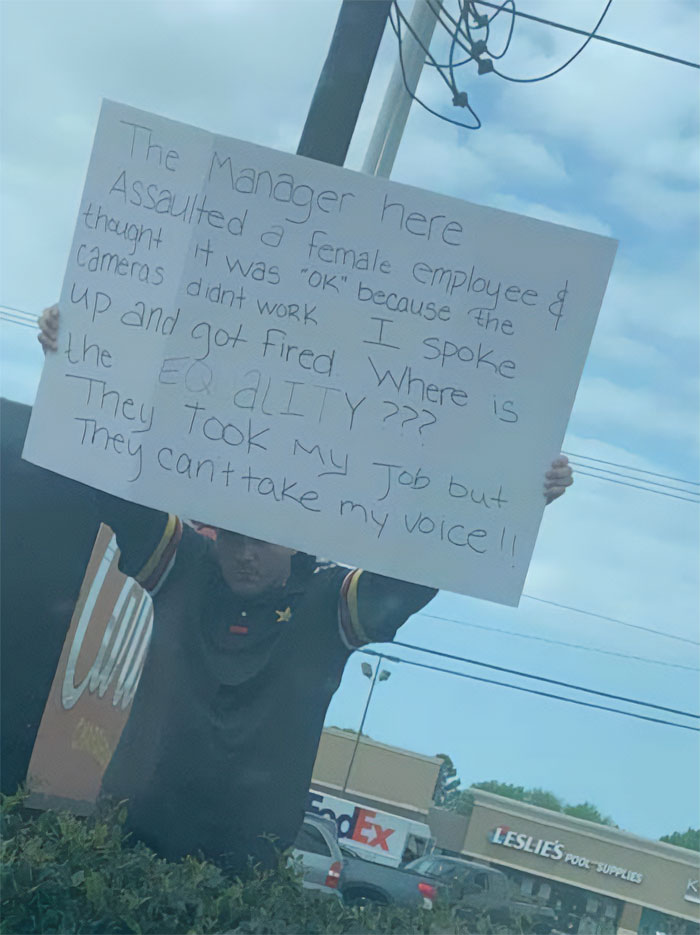 The Manager here
Assaulted a female employee &
thought it was "OK" because the
cameras didnt work I spoke
up and got fired. Where is
the EQ aLITY ???
They Took My Job but
They can't take my voice!!
FedEx
LESLIE'S POOL SUPPLIES
K